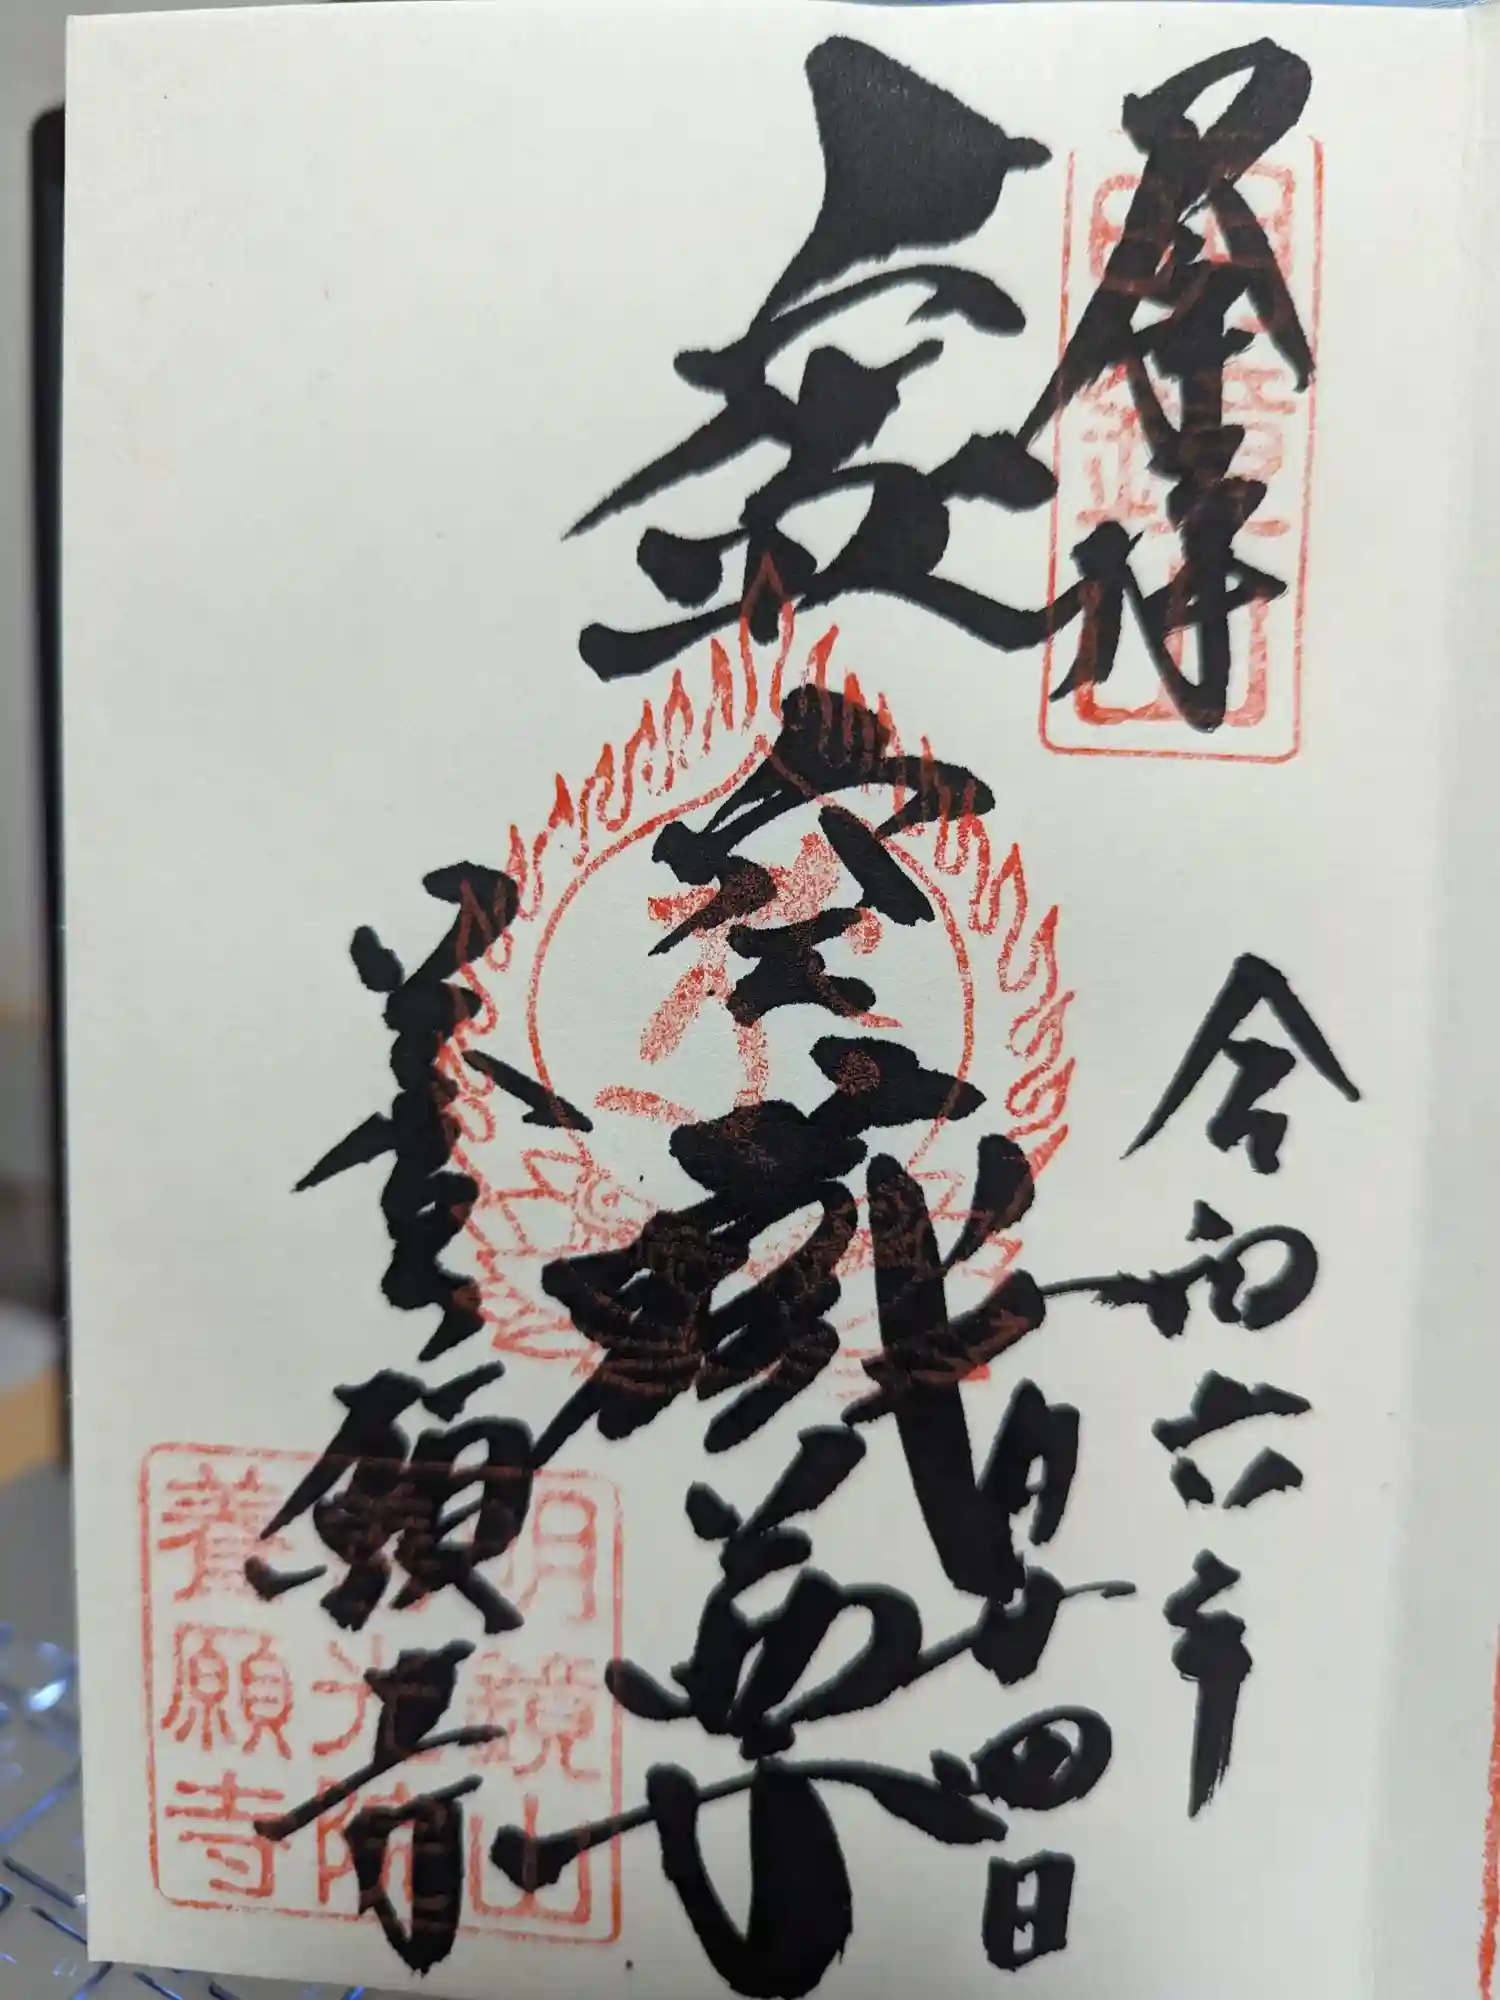 奉拝
明鏡山
令和六年
四日
虚空蔵菩薩
養願寺
明鏡山
善光院
養願寺